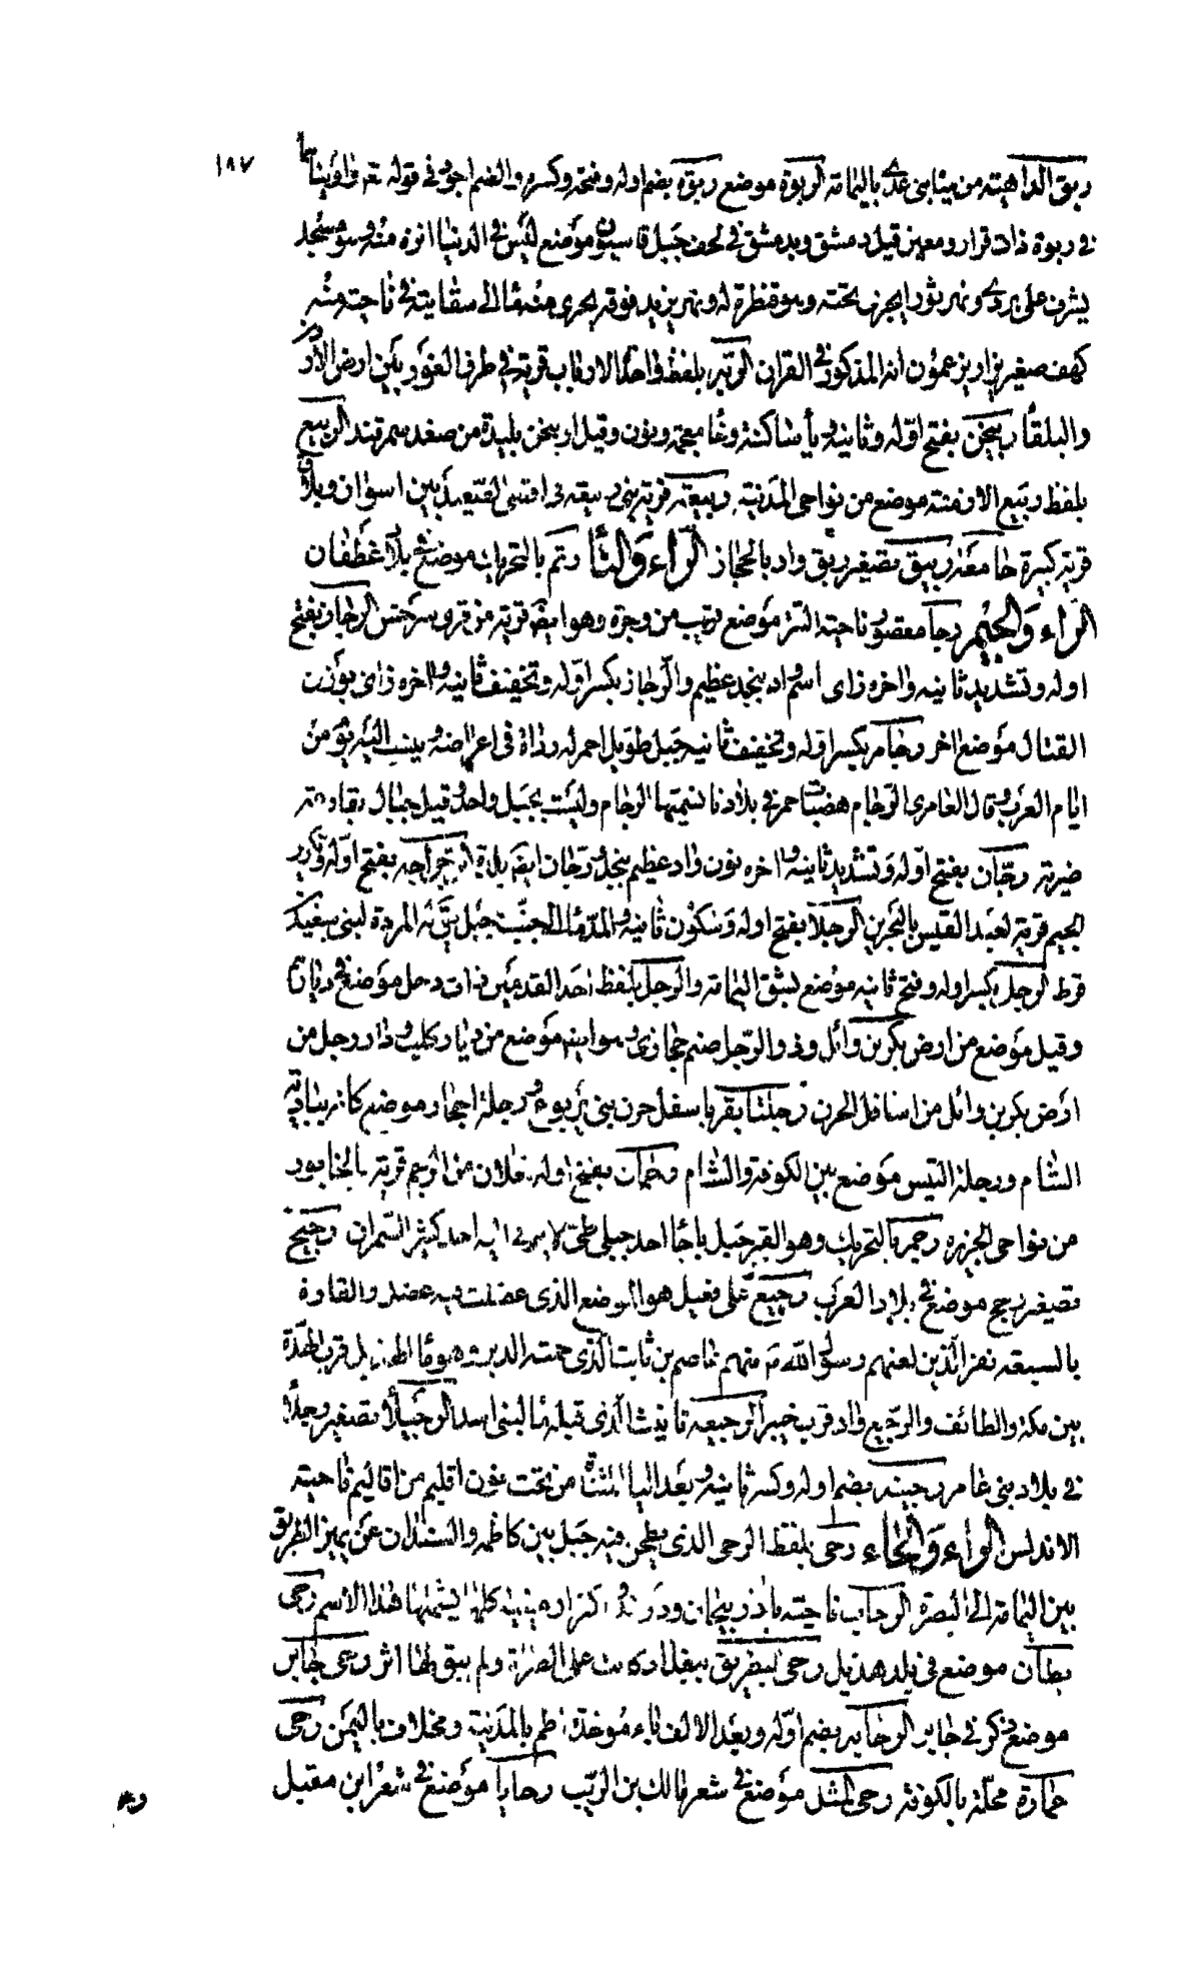 ١٨٧
ربق الداهية من مياه بنى عدى باليمامة الربوة موضع ربوة بضم اوله وفتحه وكسره والضم اجود فى قوله تعه واويناهما
الى ربوة ذات قرار ومعين قيل دمشق وبدمشق فى لحف جبل قاسيون موضع ليس فى الدنيا انزه منه وهو مسجد
يشرف على بردى ونهر ثورا يجرى تحته وهو قنظرة له ونهر يزيد فوقه يجرى منها الى سقاية فى ناحية منه
كهف صغير يزار يزعمون انه المذكور فى القران الربة بلفظ واحدة الارباب قرية فى طرف الغور بين ارض الاردن
والبلقا ربيخن بفتح اوله وثانيه ويأ ساكنة وخا معجمة ونون وقيل اربيخن بليدة من صغد سمرقند الربيع
بلفظ ربيع الازمنة موضع من نواحى المدينة ربيعة قرية بنى ربيعة فى اقصى الصعيد بين اسوان وبلاق
قرية كبيرة جامعة ربيق تصغير ربق واد بالحجاز الراء والتا رتم بالتحريك موضع فى بلاد غطفان
الراء والجيم رجا مقصور ناحية السر موضع قريب من وجرة وهو ايضا قرية من قرى سرخس الرجاز بفتح
اوله وتشديد ثانيه واخره زاى اسم واد بنجد عظيم والرجاز بكسر اوله وتخفيف ثانيه واخره زاى بوزن
القتال موضع اخر رجام بكسر اوله وتخفيف ثانيه جبل طويل احمر له رداة فى اعراضه وينسب اليه يوم من
ايام العرب وقال العامرى الرجام هضبات حمر فى بلادنا نسميها الرجام وليست بجبل واحد وقيل جبال بقارعة
ضرية رجان بفتح اوله وتشديد ثانيه واخره نون واد عظيم بنجد ورجان ايضه بلدة الرجراجه بفتح اوله وتكرير
الجيم قرية لعبد القيس بالبحرين الرجلا بفتح اوله وسكون ثانيه والمد ما الى جنب جبل يق له المردة لبنى سعيد بن
قرط الرجل بكسر اوله وفتح ثانيه موضع بشق اليمامة والرجل بلفظ احد القدمين ذات رجل موضع فى ديارهم
وقيل موضع من ارض بكر بن وائل وذو الرجل صنم حجازى وهو ايضه موضع من ديار كليب ودار رجل من
ارض بكر بن وائل من اسافل الحزن رجلتا بقر باسفل حزن بنى يربوع ورجلة احجار موضع كانه ببادية
الشام ورجلة التيس موضع بين الكوفة والشام رجمان بفتح اوله فعلان من الرجم قرية بالخابور
من نواحى الجزيره رجم بالتحريك وهو القبر جبل باجا احد جبلى طى لا يرقى اليه احد كثير النمران رجيج
تصغير رج موضع فى بلاد العرب رجيع على فعيل هو الموضع الذى عضلت فيه عضل والقارة
بالسبعة نفر الذين بعثهم رسول الله م منهم عاصم بن ثابت الذى حمته الدبر وهو ما لهذيل قرب الهدة
بين مكة والطائف والرجيع واد قرب خيبر الرجيعه تانيث الذى قبله ما لبنى اسد الرجيلأ تصغير رجلأ
فى بلاد بنى عامر رجينه بضم اوله وكسر ثانيه وبعد اليا المثناة من تحت نون اقليم من اقاليم ناحية
الاندلس الراء والحاء رحى بلفظ الرحى الذى يطحن فيه جبل بين كاظمه والسيدان عن يمين الطريق
بين اليمامة الى البصرة الرحاب ناحية باذربيجان ودربند اكثر ارمينية كلها يشملها هذا الاسم رحى
بطان موضع فى بلد هذيل رحى البطريق ببغداد كانت على الصراة ولم يبق لها اثر رحى جابر
موضع ذكر فى جابر الرحابه بضم اوله وبعد الالف باء موحدة اطم بالمدينة ومخلاف باليمن رحى
عمارة محلة بالكوفة رحى المثل موضع فى شعر مالك بن الريب رحايا موضع فى شعر ابن مقبل